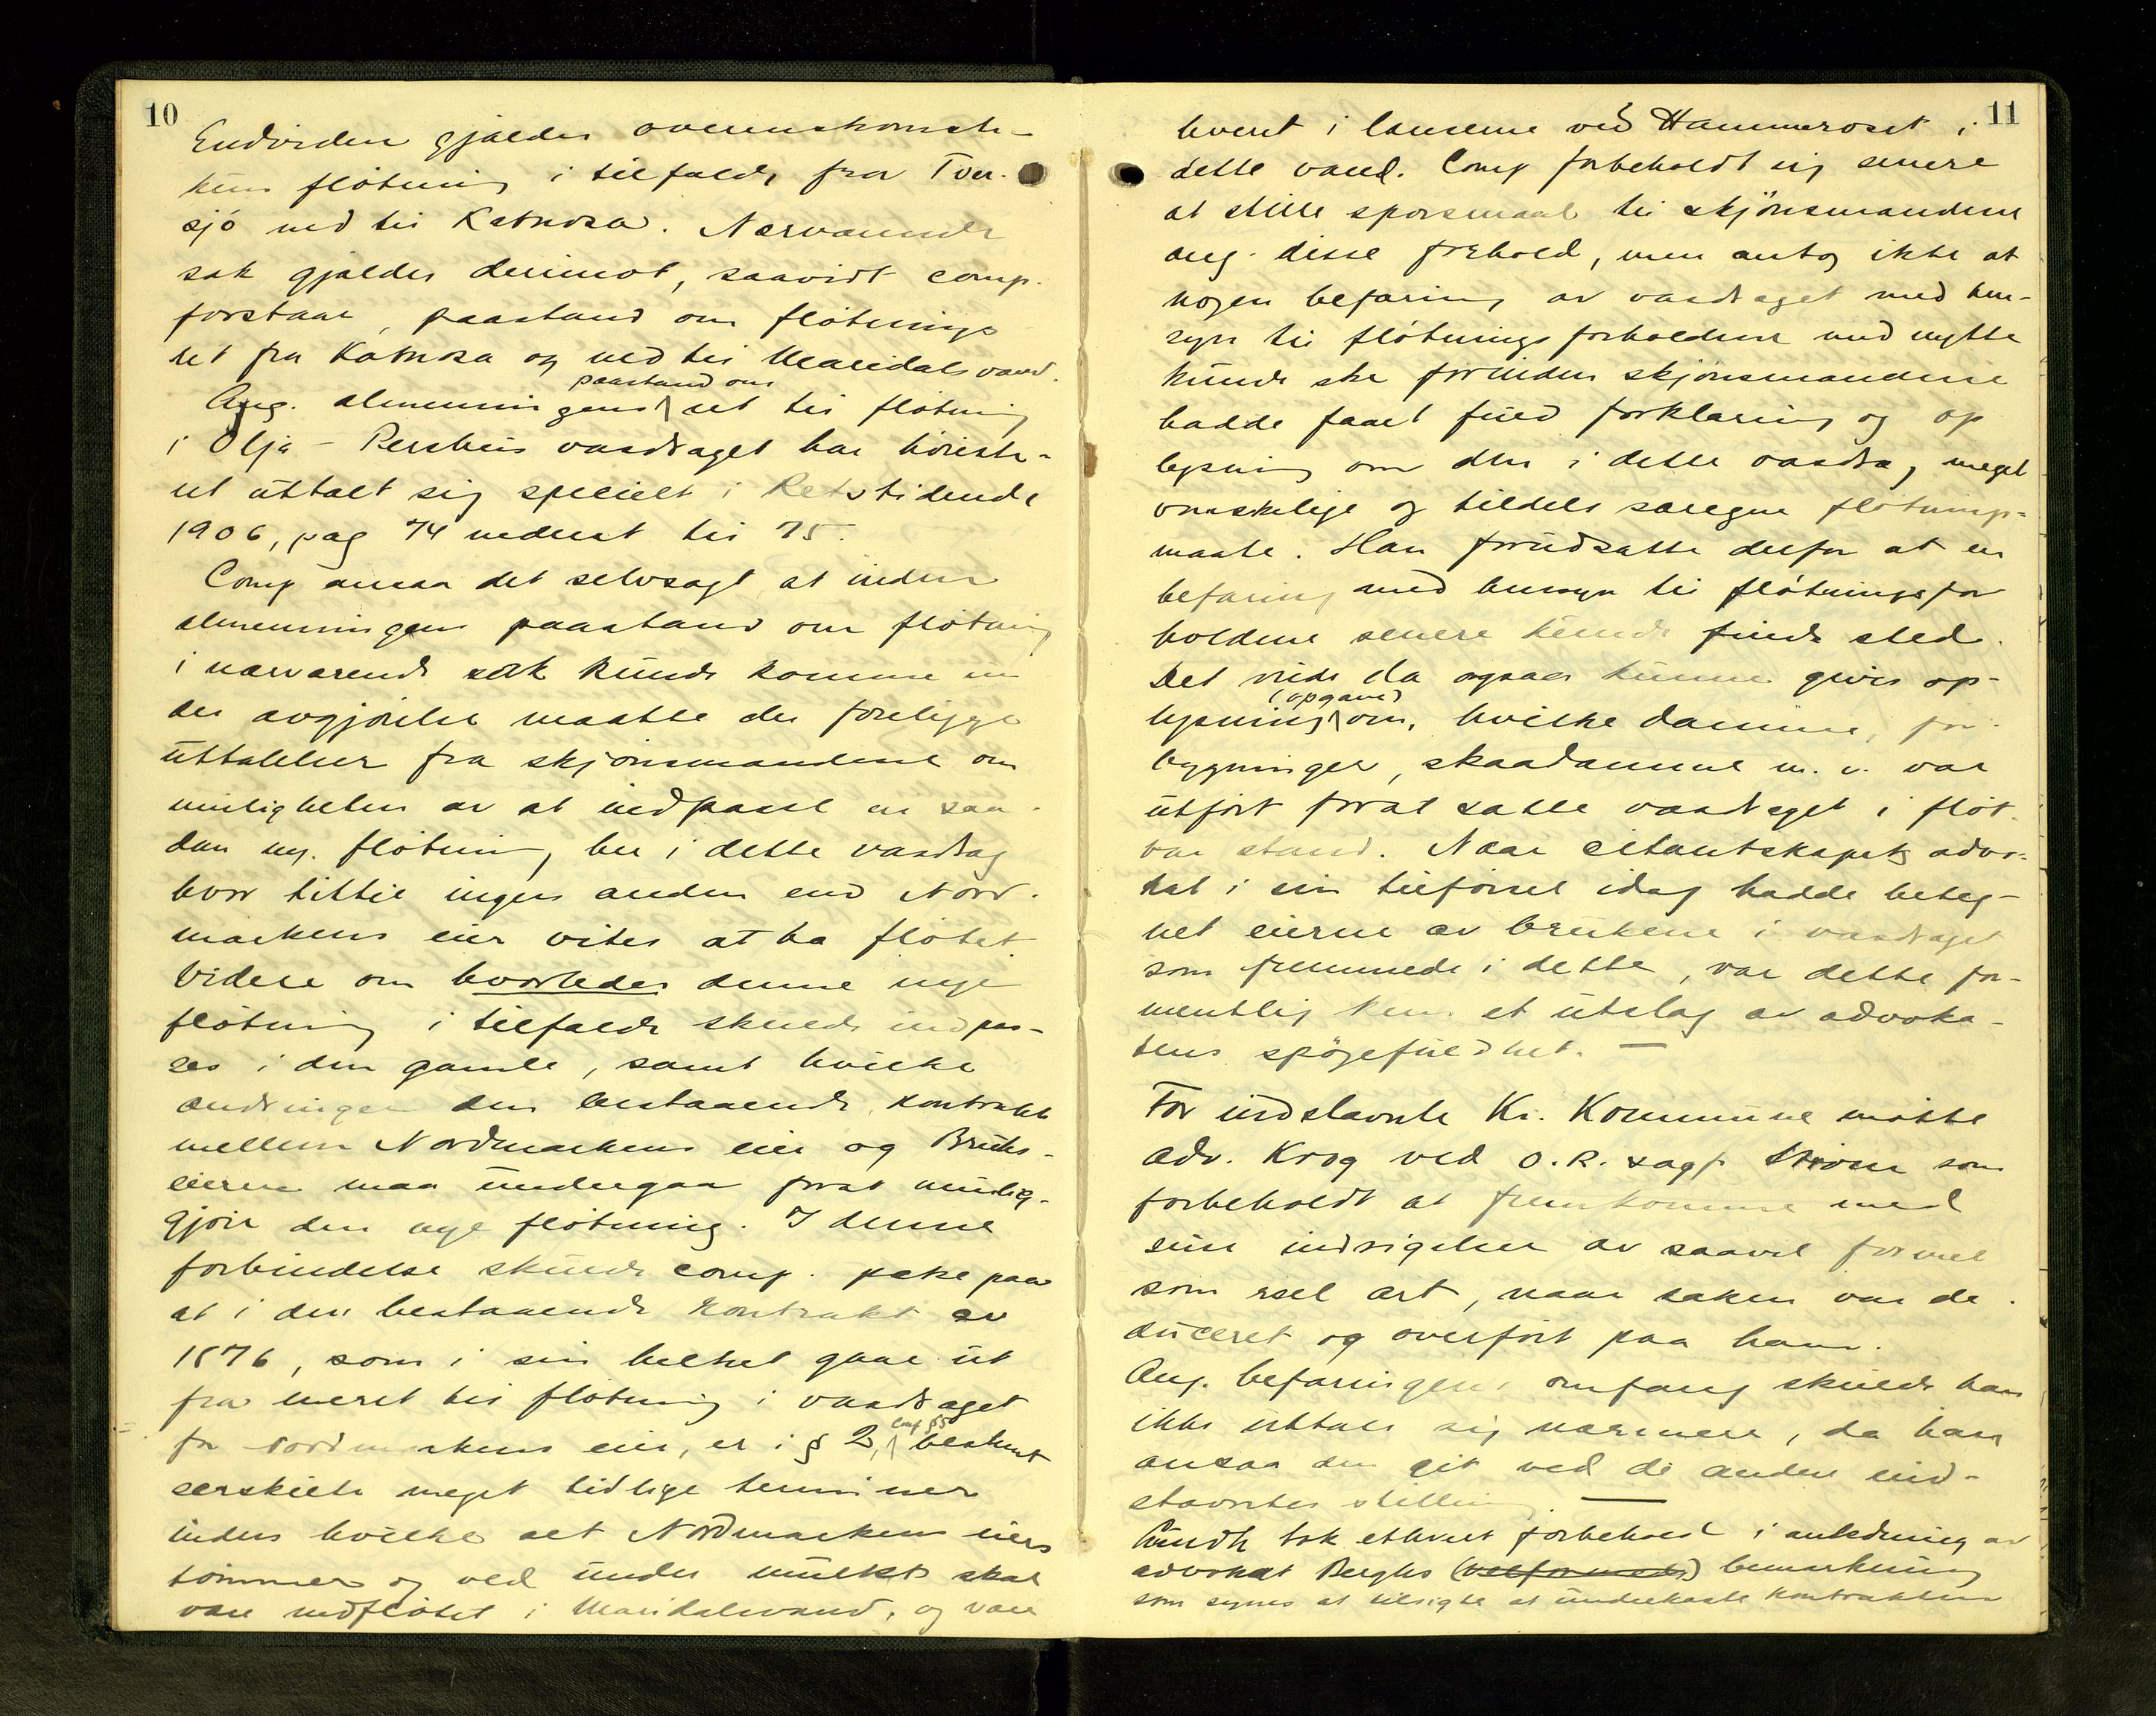 10
Endvidere gjælder overenskomste-
kun fløtning i tilfælde fra Tver-
sjø ned til Katnosa. Nærværende
sak gjælder derimot, saavidt comp.
forstaar, paastand om fløtnings
ret fra Katnosa og ned til Maridalsvand.
paastand om
Ang. almenningens ret til fløtning
i Ølja - Pershus vasdraget har høieste-
ret uttalt sig specielt i Retstidende
1906, pag 74 nederst til 75.
Comp ansaa det selvsagt, at inden
almenningens paastand om fløtning
i nærværende sak kunde komme un
der avgjørelse maatte der foreligge
uttalelser fra skjønsmændene om
muligheten av at indpasse en saa-
dan ny. fløtning, her i dette vasdrag
hvor hittil ingen anden end Nord-
markens eier vites at ha fløtet
Videre om hvorledes denne nye
fløtning i tilfælde skulde indpas-
ses i den gamle, samt hvilke
ændringer den bestaaende kontrakt
mellem Nordmarkens eier og Bruks-
eierne maa undergaa forat mulig-
gjøre den nye fløtning. I denne
forbindelse skulde comp. peke paa
at i den bestaaende kontrakt av
1876, som i sin helhet gaar ut
fra eneret til fløtning i vasdraget
for Nordmarkens eier, er i § 2, bestemt
særskilte meget tidlige terminer
inden hvilke alt Nordmarkens eiers
tømmer og ved under mulkt skal
være nedfløtet i Maridalsvand, og være
11
hvervet i lænserne ved Hammeroset i
dette vand. Comp forbeholdt sig senere
at stille spørsmaal til skjønsmændene
ang. disse forhold, men antog ikke at
nogen befaring av vasdraget med hen-
syn til fløtningsforholdene med nytte
kunde ske forinden skjønsmændene
hadde faaet fuld forklaring og op
lysning om den i dette vasdrag meget
vanskelige og tildels særegne fløtnings-
maate. Han forudsatte derfor at en
befaring med hensyn til fløtningsfor
holdene senere kunde finde sted.
Det vilde da ogsaa kunne gives op-
(opgave)
lysning om, hvilke damme, for-
bygninger, skaadamme m. v. var
utført forat sætte vasdraget i fløt-
bar stand. Naar citantskapets advo-
kat i sin tilførsel idag hadde beteg-
net eierne av brukene i vasdraget
som fremmede i dette, var dette for-
mentlig kun et utslag av advoka-
tens spøgefuldhet. —
For indstævnte Kr. Kommune møtte
adv. Krog ved o.r. sagf. Strøm som
forbeholdt at fremkomme med
sine indsigelser av saavel formel
som reel art, naar saken var de-
duceret og overført paa ham.
Ang. befaringens omfang skulde han
ikke uttale sig nærmere, da han
ansaa den git ved de andre ind-
stævntes stilling. —
tok ethvert forbehold i anledning av
advokat Berghs (velformede) bemerkning
som synes at tilsigte at underkaste kontrakten